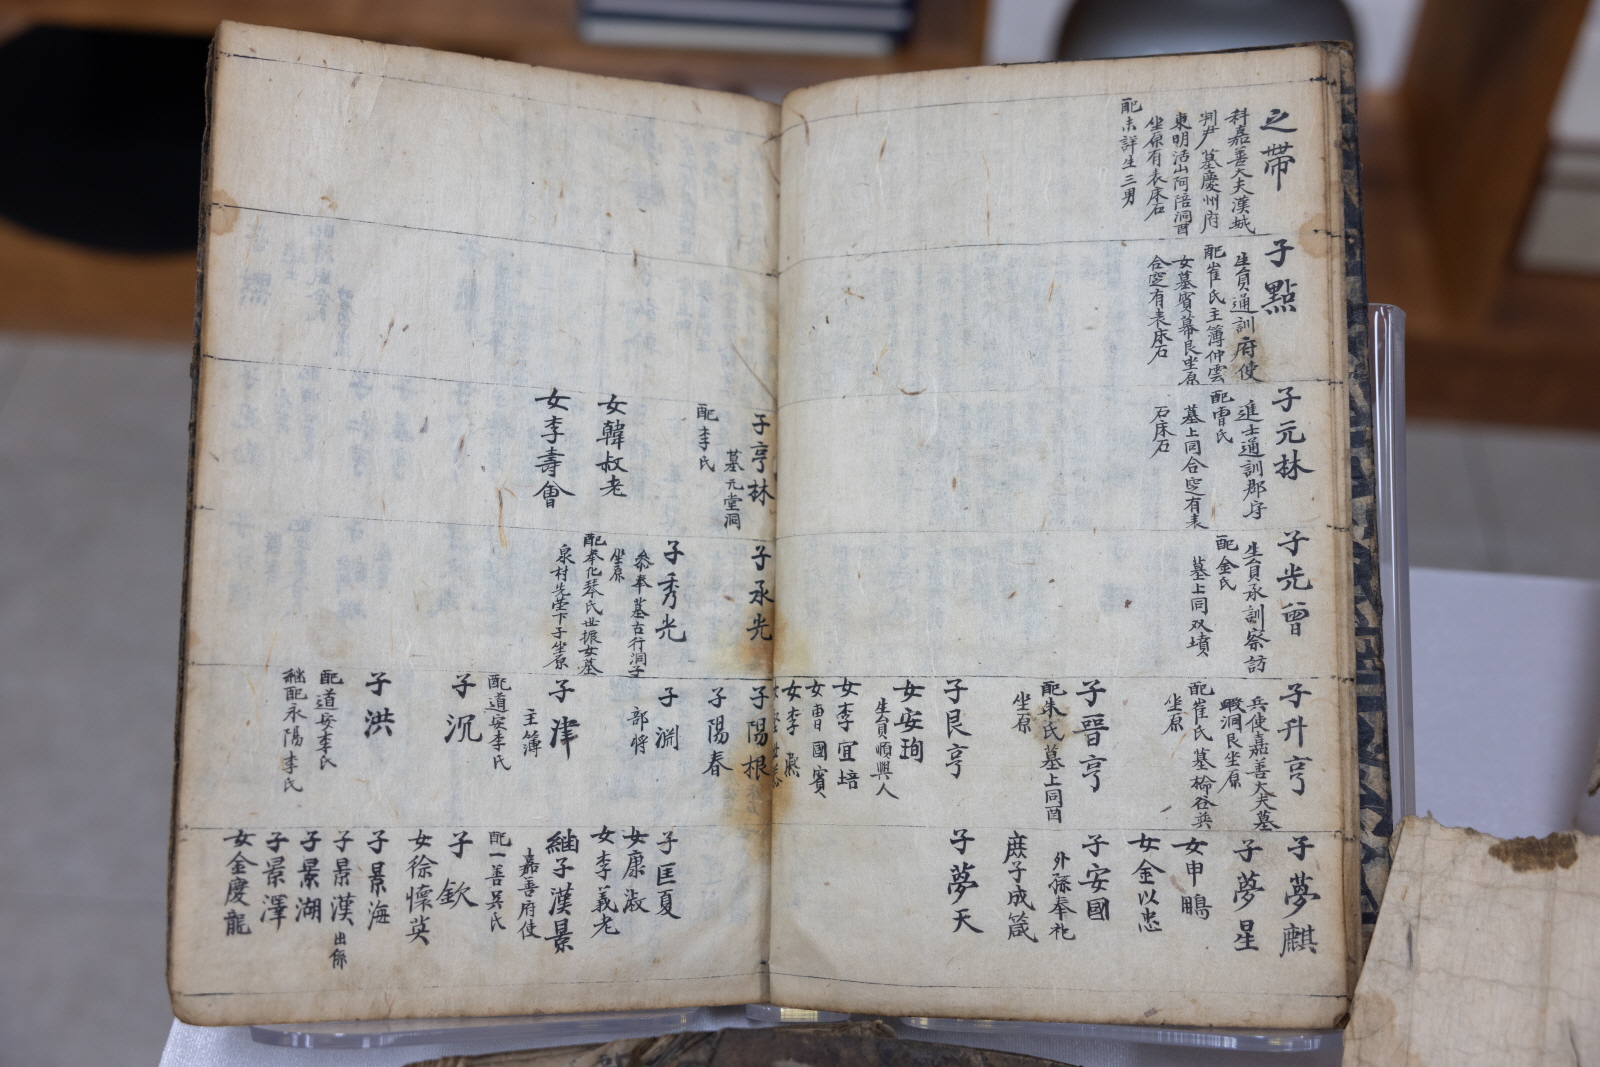 之帶
科嘉善大夫漢城
判尹墓慶州府
東明活山阿陪洞酉
坐原有表床石
配未詳生三男
子點
生員通訓府使
配崔氏主簿仲雲
女墓賓幕艮坐原
合窆有表床石
子元林
進士通訓郡守
配曺氏
墓上同合窆有表
石床石
子光曾
生員承訓察訪
配金氏
墓上同双墳
子升亨
兵使嘉善大夫墓
洞艮坐原
配崔氏墓
坐原
子晋亨
配朱氏墓上同酉
坐原
子艮亨
女安珣
生員順興人
女李宜培
女曺國賓
女李
子夢麒
子夢星
女申鵬
女金以忠
子安國
外孫奉祀
庶子成箴
子夢天
子亨林
墓元堂洞
配李氏
女韓叔老
女李壽會
子承光
子秀光
參奉墓古行洞子
坐原
配奉化琴氏世振女墓
泉村先塋下子坐原
子陽根
子陽春
子淵
部将
子津
主簿
配道安李氏
子沉
子洪
配道安李氏
継配永陽李氏
子匡夏
女康淑
女李義老
子漢景
嘉善府使
配一善吳氏
子欽
女徐懷英
子景海
子景漢出系
子景湖
子景澤
女金慶龍